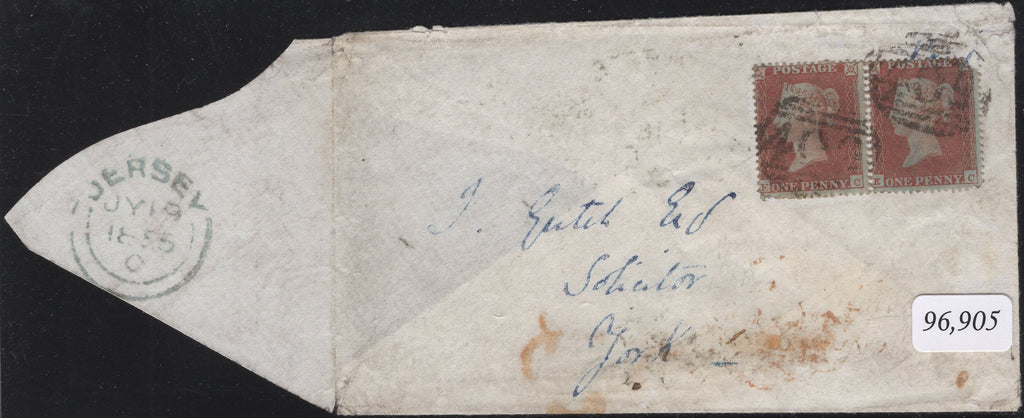 JERSEY
JY 18
1855
C
POSTAGE POSTAGE
ONE PENNY C ONE PENNY C
J. Gutch Esq
Solicitor
York
96,905